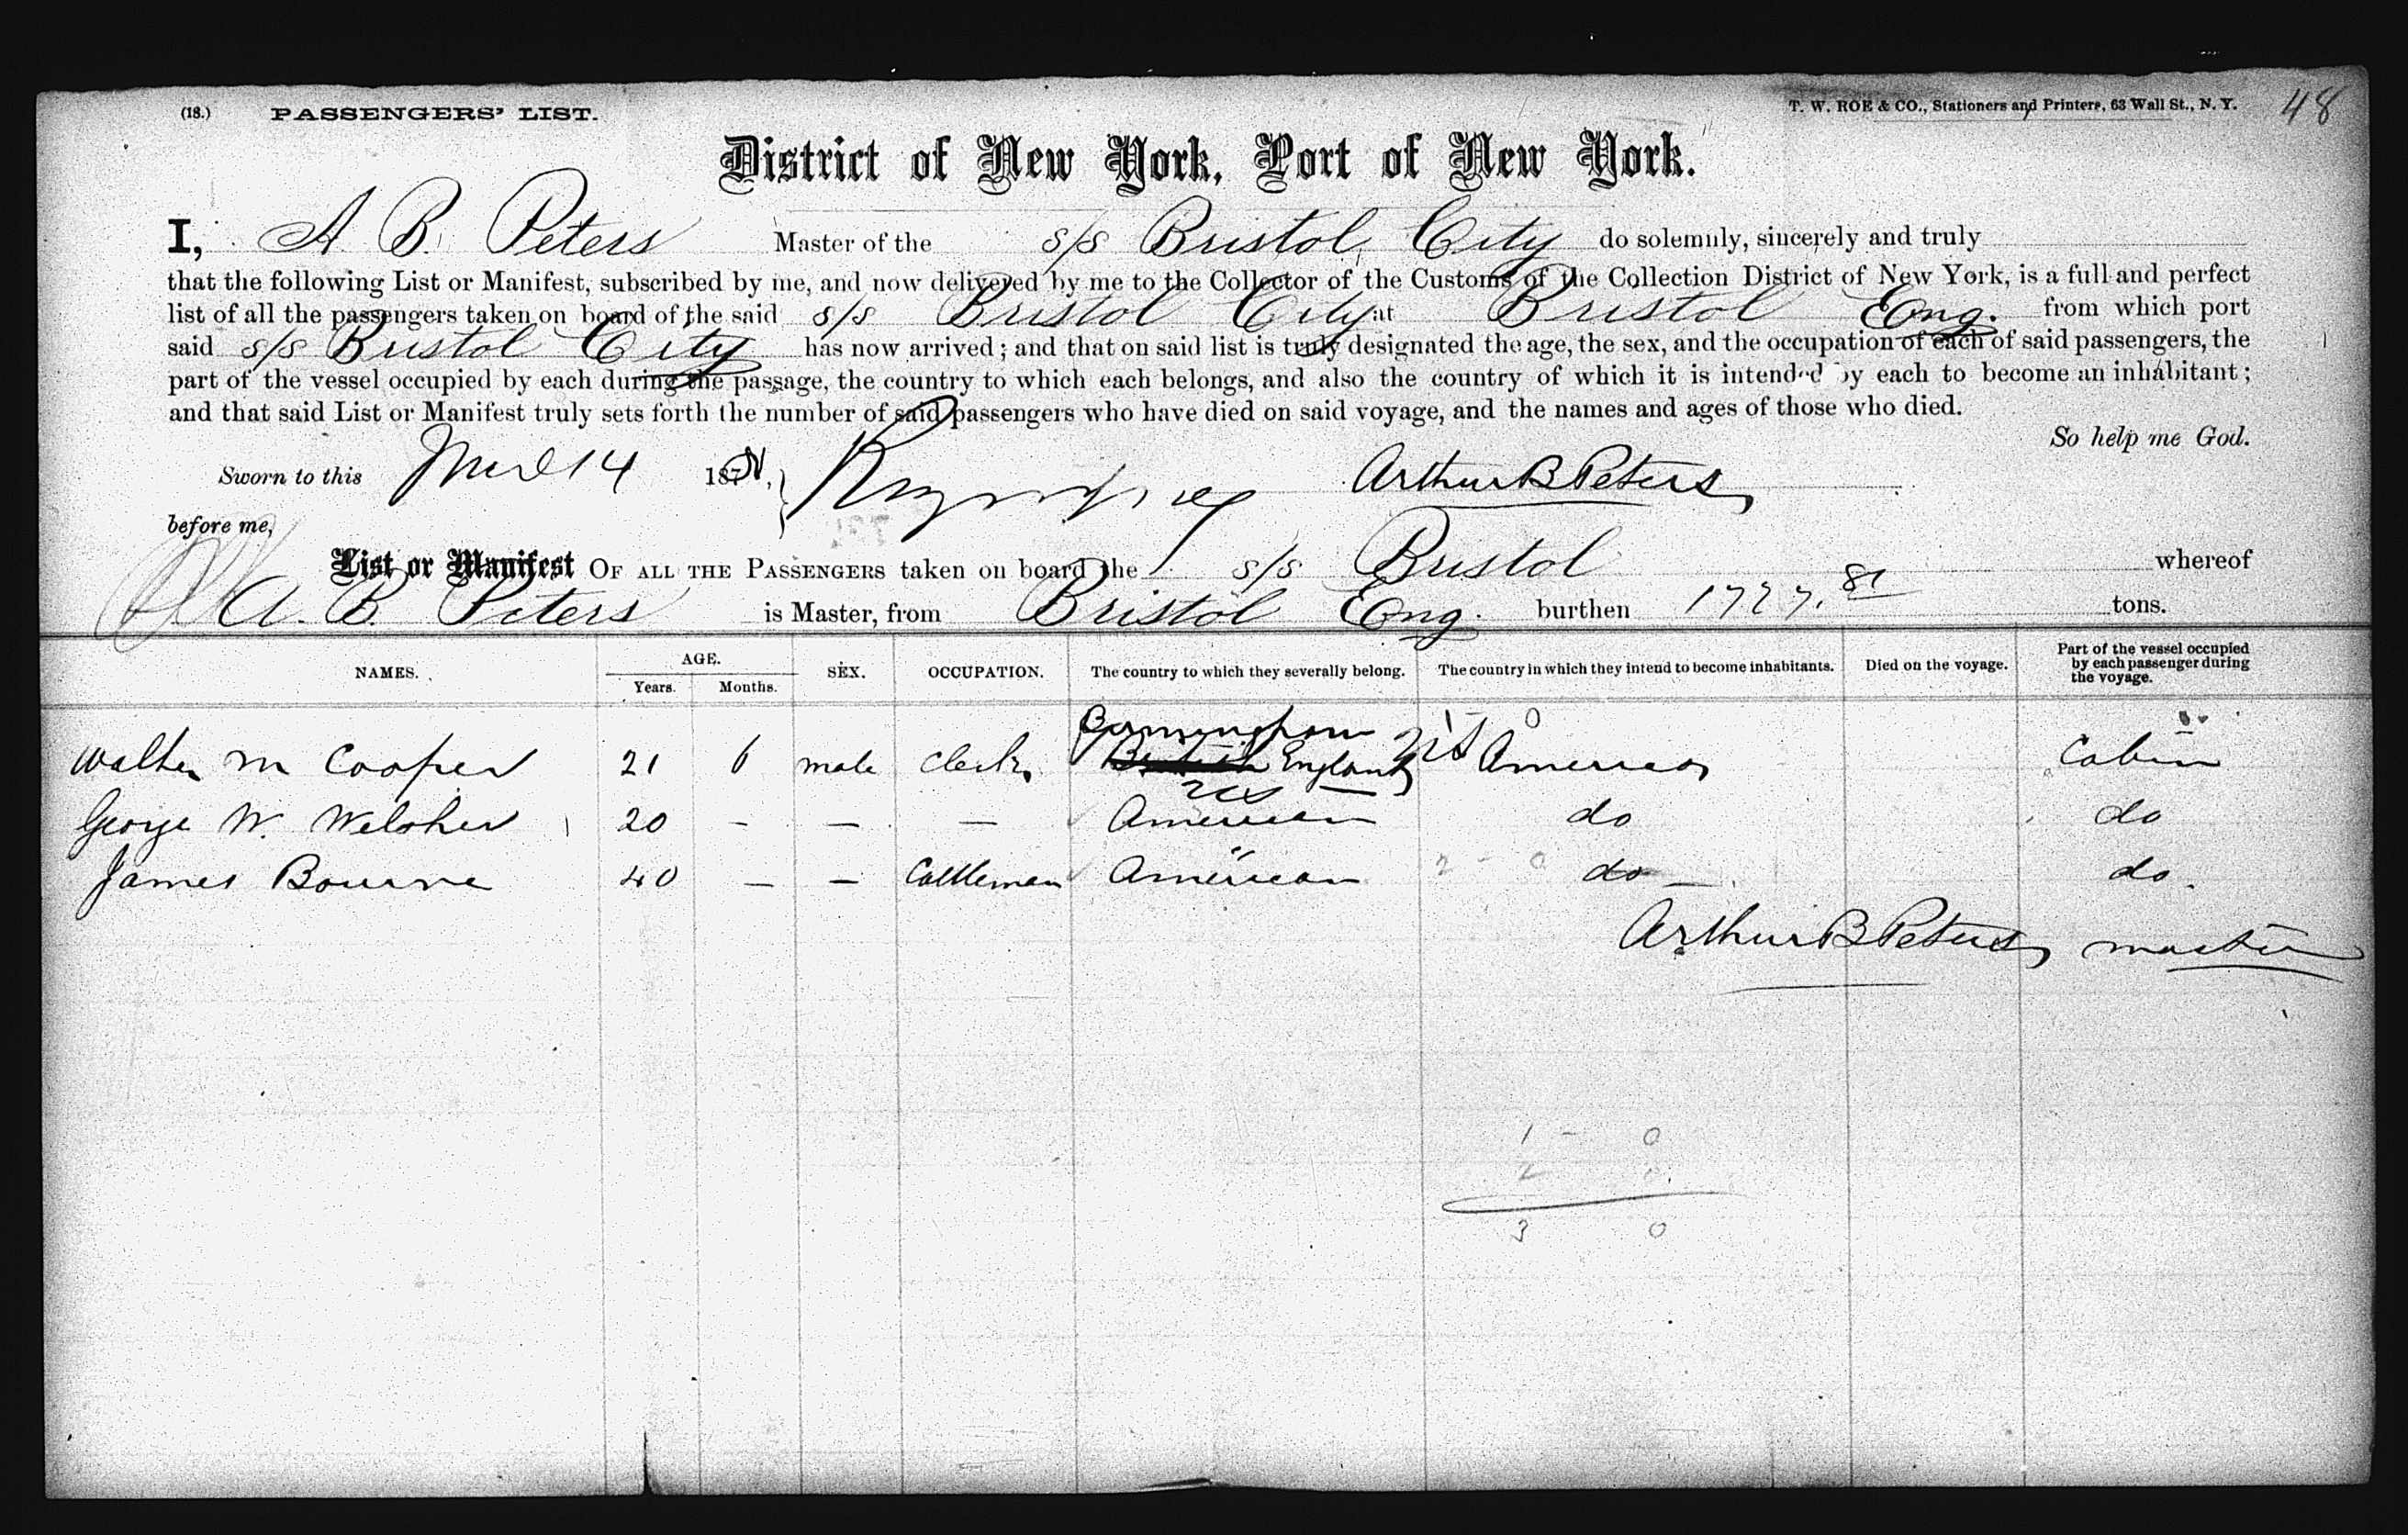 (18.) PASSENGERS' LIST. T. W. ROE & CO., Stationers and Printers, 63 Wall St., N. Y. 48
District of New York, Port of New York.
I, A B. Peters Master of the s/s Bristol City do solemnly, sincerely and truly
that the following List or Manifest, subscribed by me, and now delivered by me to the Collector of the Customs of the Collection District of New York, is a full and perfect
list of all the passengers taken on board of the said s/s Bristol City at Bristol Eng. from which port
said s/s Bristol City has now arrived; and that on said list is truly designated the age, the sex, and the occupation of each of said passengers, the
part of the vessel occupied by each during the passage, the country to which each belongs, and also the country of which it is intended by each to become an inhabitant;
and that said List or Manifest truly sets forth the number of said passengers who have died on said voyage, and the names and ages of those who died.
So help me God.
Sworn to this 14 Arthur B Peters
before me,
List or Manifest OF ALL THE PASSENGERS taken on board the s/s Bristol whereof
A. B. Peters is Master, from Bristol Eng. burthen 1727. 81 tons.
NAMES. AGE. Years. Months. SEX. OCCUPATION. The country to which they severally belong. The country in which they intend to become inhabitants. Died on the voyage. Part of the vessel occupied by each passenger during the voyage.
Birmingham 1 - 0
Walter M Cooper 21 6 male Clerk England US America Cabin
US
George W. Welsher 20 - - - American do do
James Bourne 40 - - Cattleman American 2 - 0 do do.
Arthur B Peters master
1 - 0
2
3 0